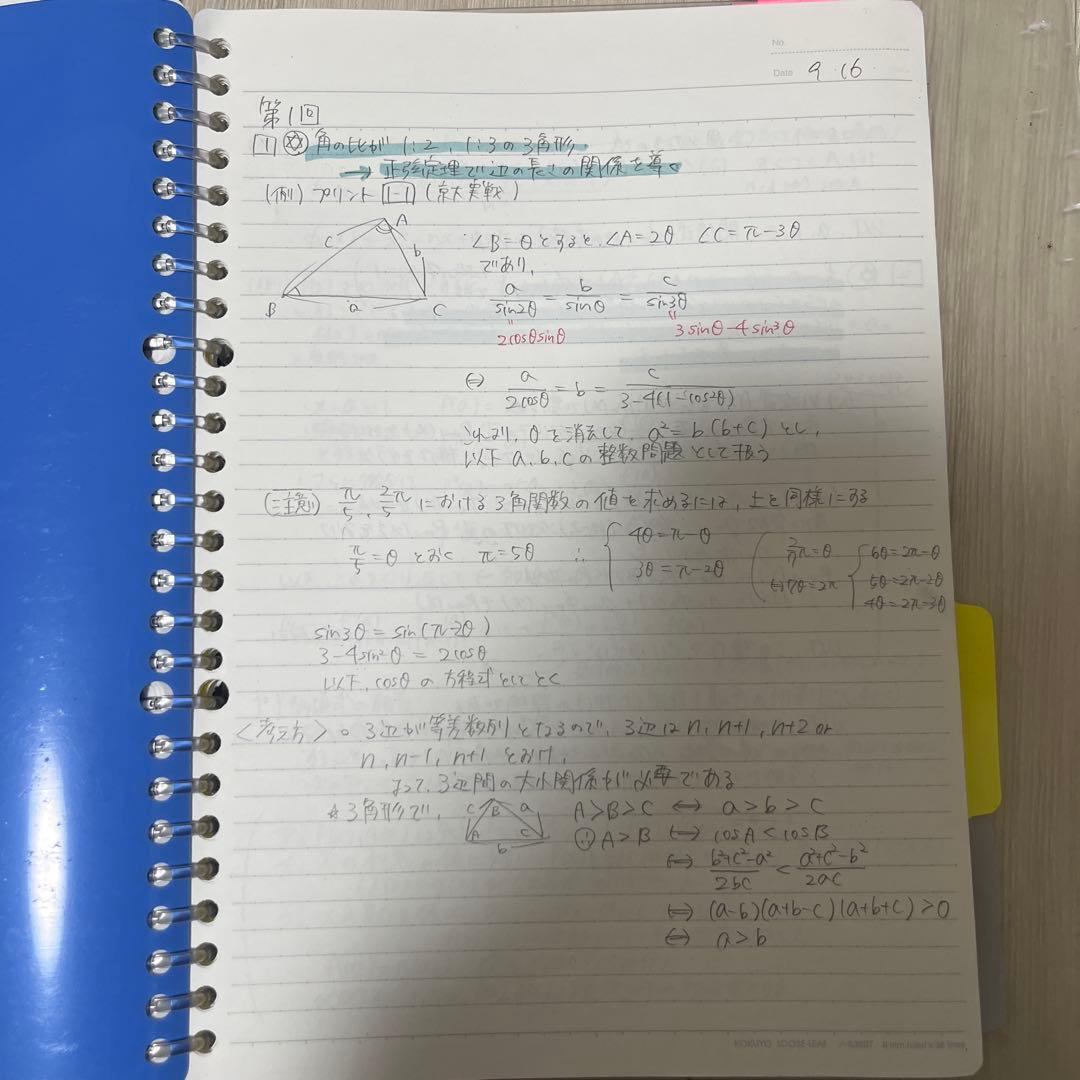 No.
Date 9・16・
第1回
1 角の比が 1:2, 1:3の3角形
→ 正弦定理で辺の長さの関係を導く
(例) プリント 1-1 (京大実戦)
A
c
b
B a C
∠B=θとすると、∠A=2θ ∠C=π-3θ
であり、
a/sin2θ = b/sinθ = c/sin3θ
2cosθsinθ
3sinθ-4sin³θ
⇔ a/2cosθ = b = c/3-4(1-cos²θ)
これより、θを消去して、a²=b(b+c) とし、
以下 a,b,cの整数問題として扱う
(注意) π/5, 2/5πにおける3角関数の値を求めるには、上と同様にする
π/5=θ とおく π=5θ ∴ { 4θ=π-θ
3θ=π-2θ
(2/7π=θ
⇔7θ=2π { 6θ=2π-θ
5θ=2π-2θ
4θ=2π-3θ
sin3θ=sin(π-2θ)
3-4sin²θ = 2cosθ
以下、cosθの方程式としてとく
<考え方> 。3辺が等差数列となるので、3辺は n, n+1, n+2 or
n, n-1, n+1 とおけ、
よって、3辺間の大小関係が必要である
☆3角形で、
c B a
A C
b
A>B>C ⇔ a>b>c
∵ A>B ⇔ cosA<cosB
⇔ b²+c²-a²/2bc < a²+c²-b²/2ac
⇔ (a-b)(a+b-c)(a+b+c)>0
⇔ a>b
KOKUYO LOOSE-LEAF